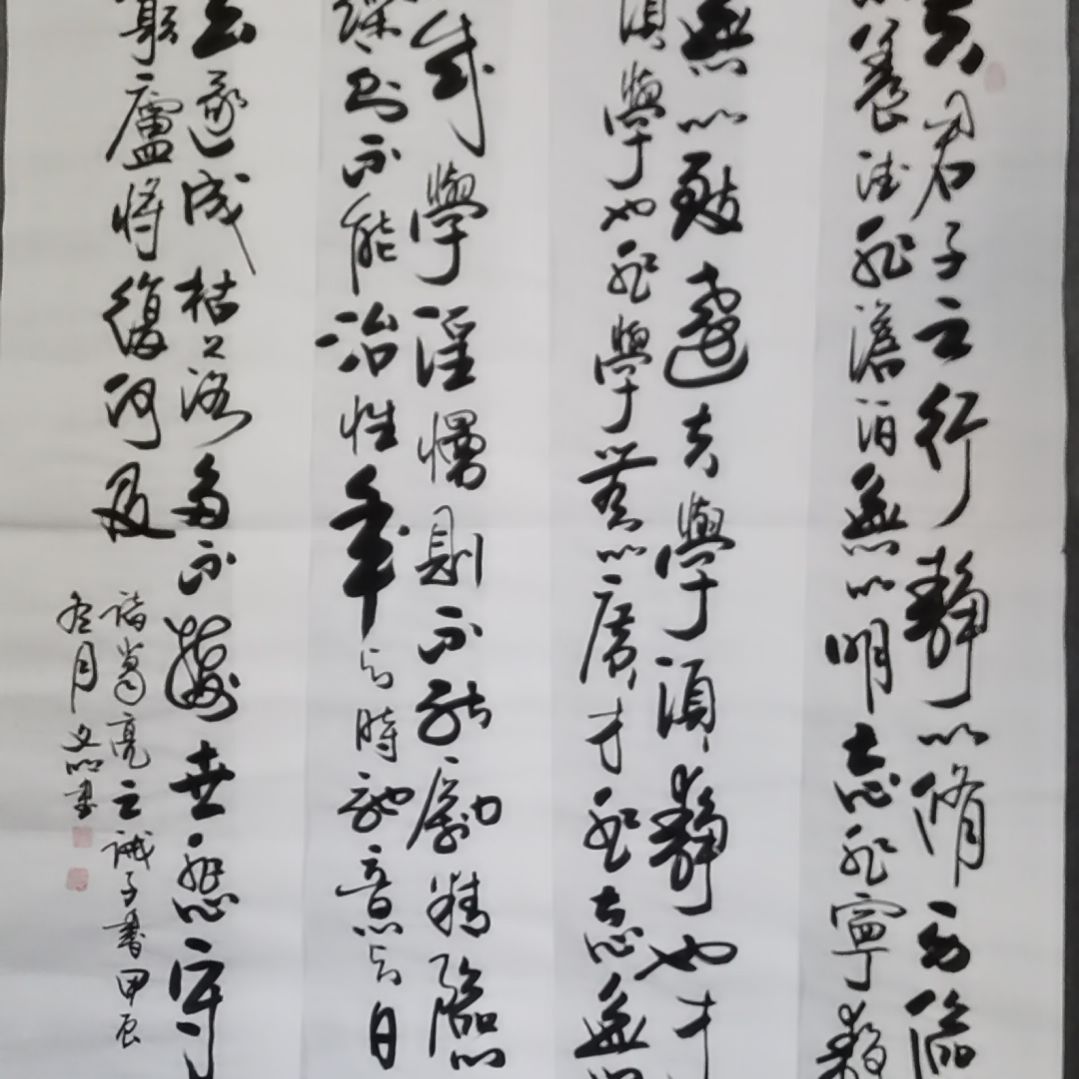 夫君子之行靜以脩身儉
以養德非澹泊無以明志非寧靜
無以致遠夫學須靜也才
須學也非學無以廣才非志無以
成學淫慢則不能勵精險
躁則不能冶性年与時馳意与日
去遂成枯落多不接世悲守
窮廬將復何及
諸葛亮之誡子書甲辰
冬月文心書